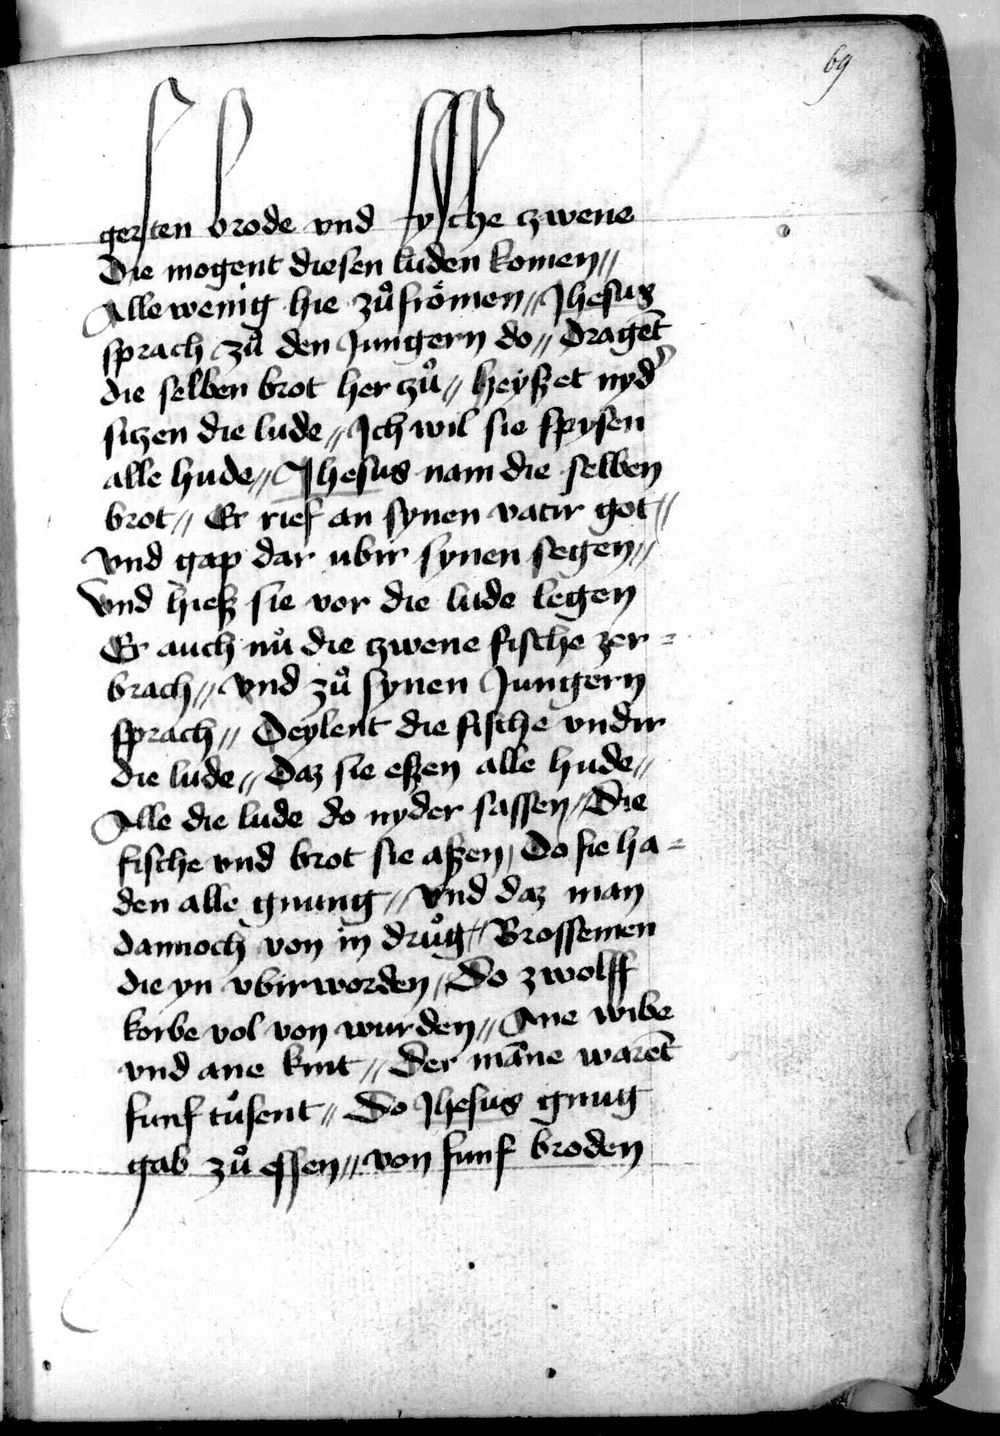 69
gersten brode vnd fysche zwene
Die mogent diesen luden komen//
Alle wenig hie zuͦ frömen// Jhesus
sprach zuͦ den Jungern do// dragēt
die selben brot her zuͦ// heyßet nyd᷑
sitzen die lude// Jch wil sie spysen
alle hude// Jhesus nam die selben
brot// Er rief an synen vatir got//
vnd gap dar ubir synen segen//
Vnd hieß sie vor die lude legen
Er auch nuͦ die zwene fische zer=
brach// vnd zuͦ synen Jungern
sprach// Deylent die fische vndir
die lude// Daz sie eßen alle hude//
Alle die lude do nyder sassen// Die
fische vnd brot sie aßen/ Do sie ha=
den alle gnung// Vnd daz man
dannoch von in druͦg// Brossemen
die yn vbir worden/ Do zwolff
korbe vol von wurden// Ane wibe
vnd ane kint// Der māne warēt
funf tuͦsent// Do Jhesus gnug
gab zuͦ essen// von funf broden